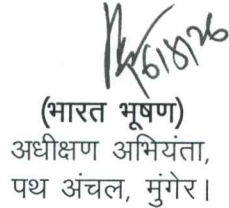 6/8/26
(भारत भूषण)
अधीक्षण अभियंता,
पथ अंचल, मुंगेर।